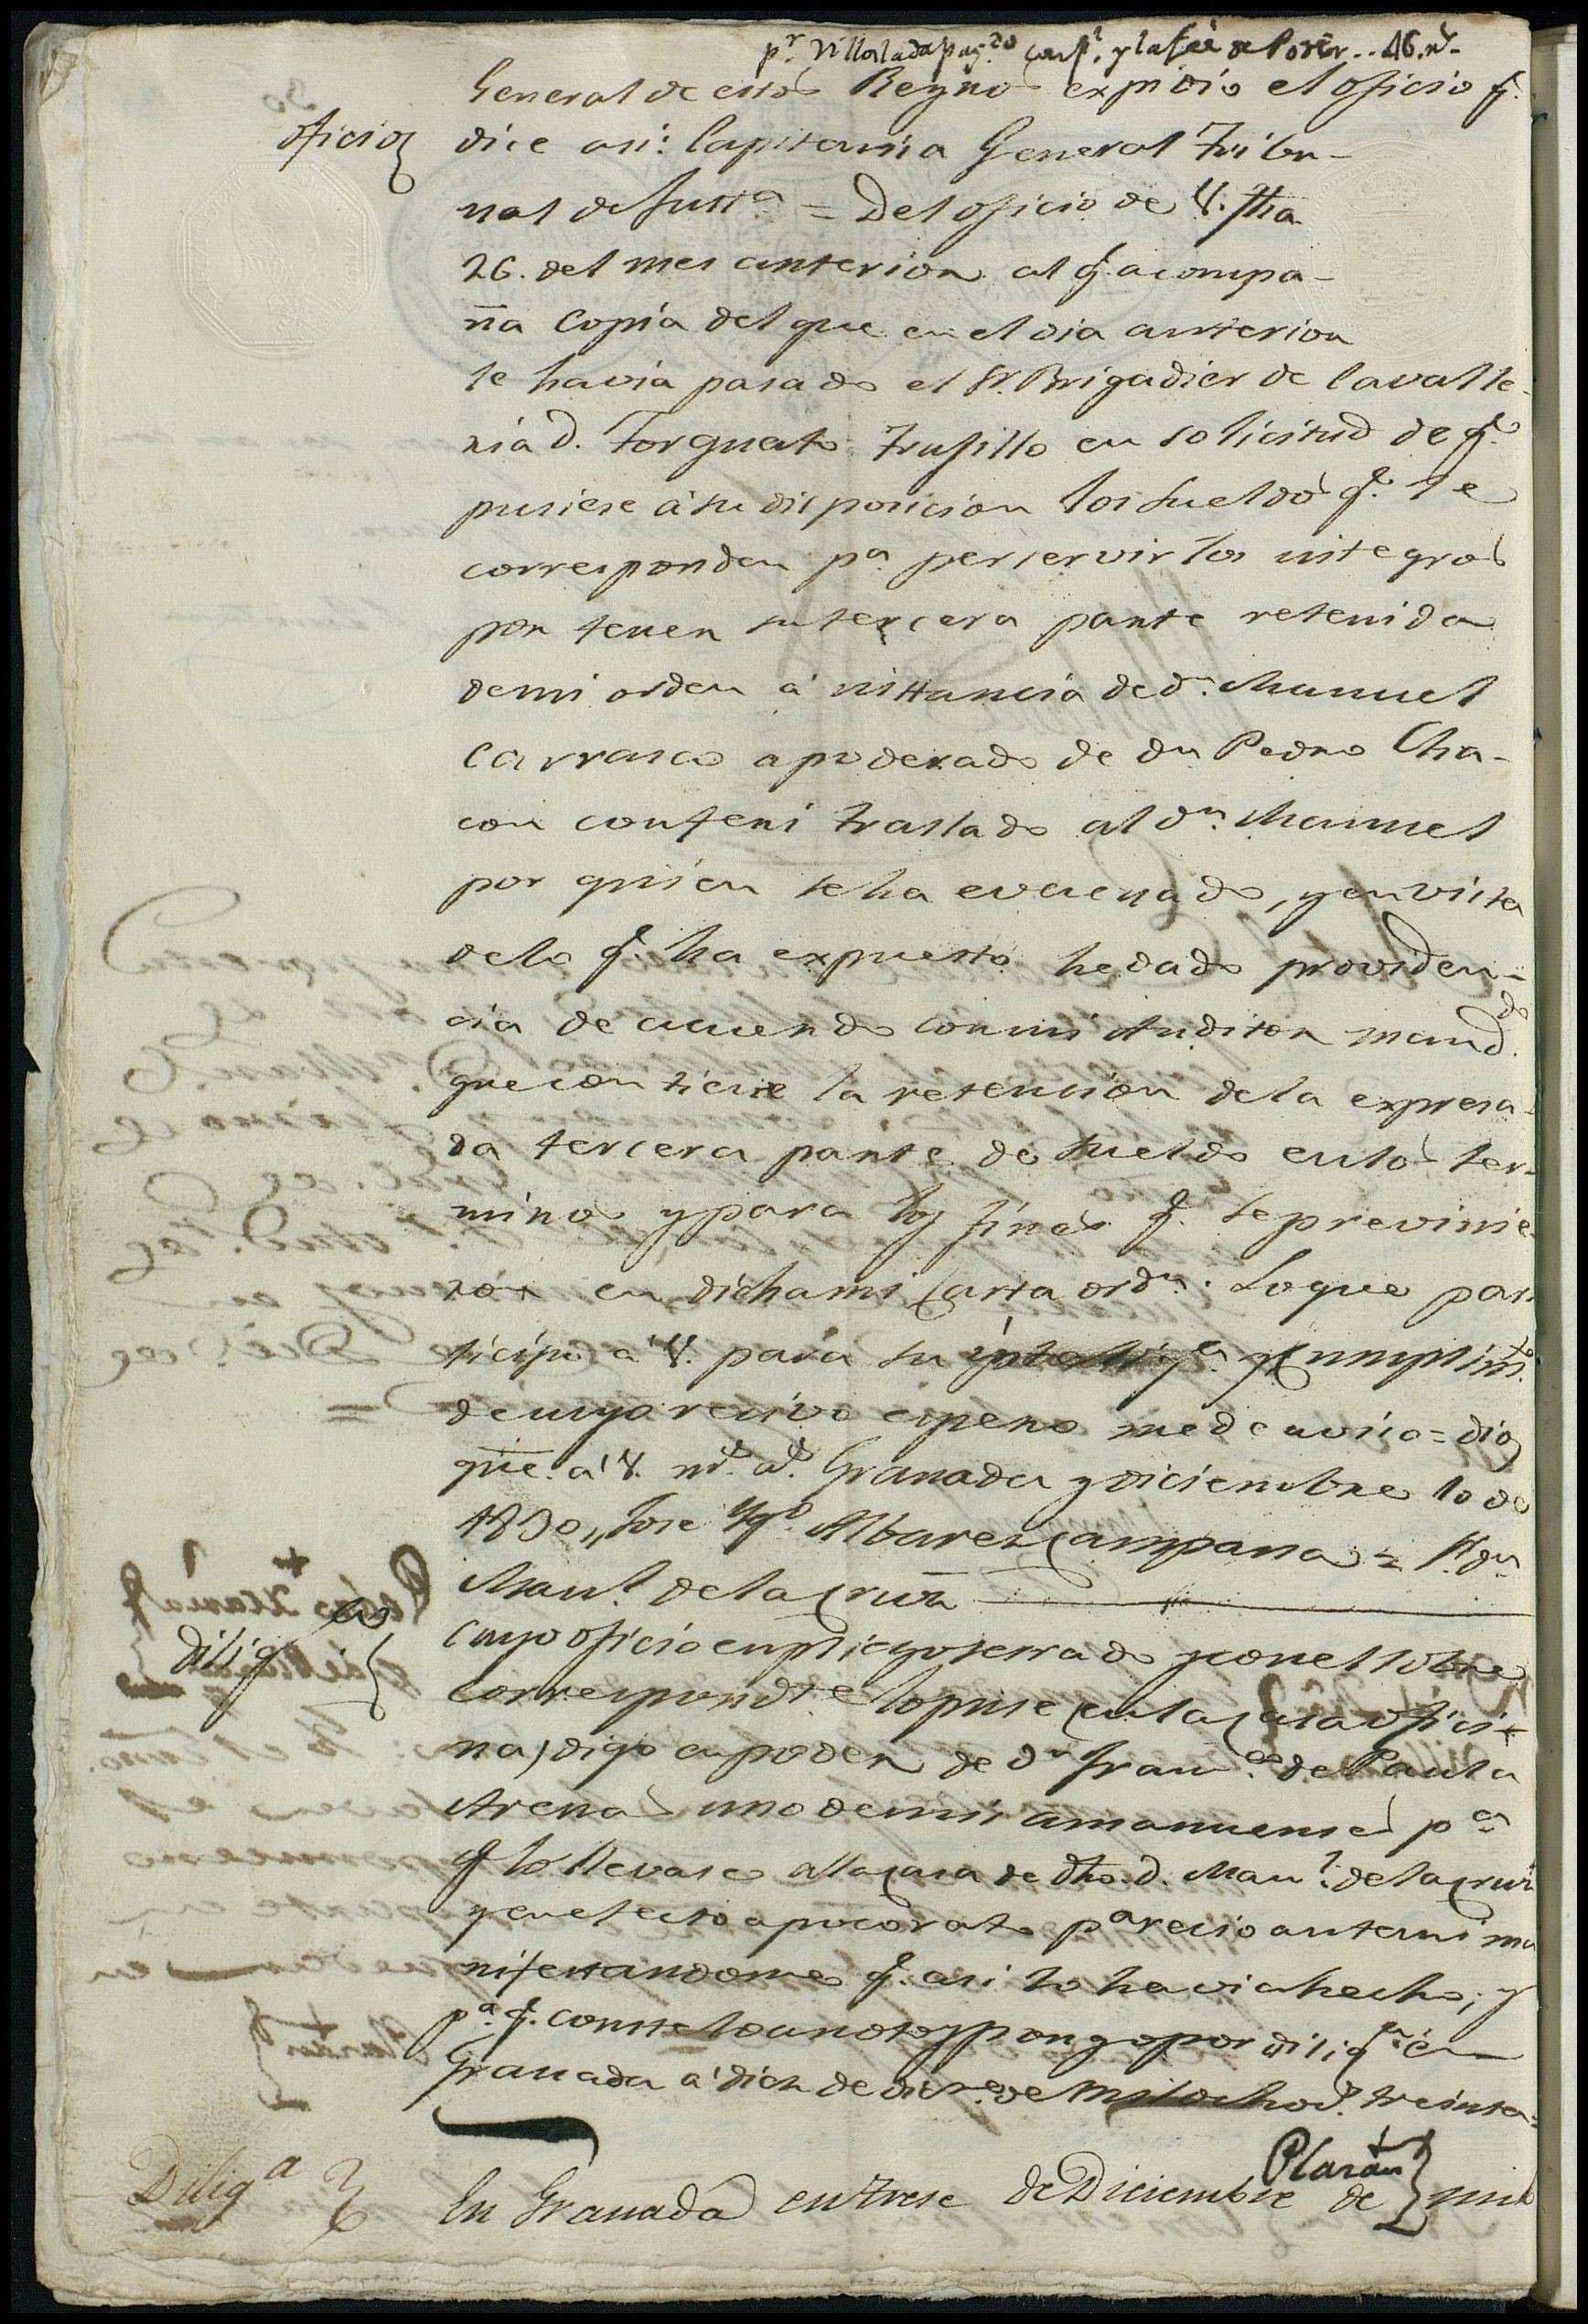 pr. Villoslada pagdo carpta. y la fee de Poder.. 46. rs.
General de estos Reynos expidió el oficio q.
oficio dice asi: Capitania General Tribu-
nal de Justa = Del oficio de V. fha
26. del mes anterior al q. acompa-
ña copia del que en el dia anterior
le havia pasado el Sr. Brigadier de Cavalle-
ria D. Torquato Trujillo en solicitud de q.
pusiese á su disposicion los sueldos q. le
corresponden pa. perservirlos integros
por tener su tercera parte retenida
de mi orden á instancia de dn. Manuel
Carrasco apoderado de dn Pedro Cha-
con conferi traslado al dn. Manuel
por quien se ha evacuado, y en vista
de lo q. ha expuesto he dado providen-
cia de acuerdo con mi Auditor manddo.
que continue la retencion de la expresa-
da tercera parte de sueldo en los ter-
minos y para los fines q. se previnie-
ron en dicha mi Carta ordn. Lo que par-
ticipo á V. para su inteliga. y cumplimto.
de cuyo recivo espero me de aviso = dios
gue. á V. ms. as. Granada y diciembre 10 de
1830,, Jose Ygo. Albarez Campana = Sr. dn
Manl. de la Cruz
dilig cuyo oficio en pliego serrado y con el sobre
correspondte lo puse (en la casa ofici-
na) digo en poder de dn franco. de Paula
Arenas uno de mis amanuenses pa
q lo llevase a la casa de dho. d. Manl. de la Cruz
y en efecto a poco rato parecio ante mi ma
nifestandome q. asi lo havia hecho; y
pa. q. conste lo anoto y pongo por diliga. en
Granada á diez de dice. de mil ochos. treinta=
Plarán
Diliga En Granada en trese de Diciembre de mil